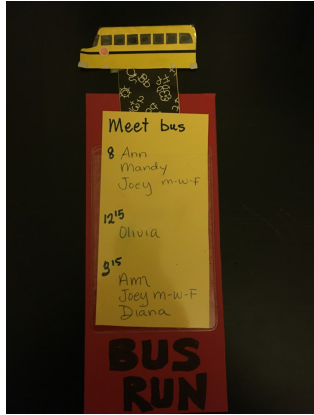 Meet bus
8 Ann
Mandy
Joey m-w-F
12¹⁵
Olivia
3¹⁵
Ann
Joey m-w-F
Diana
BUS
RUN